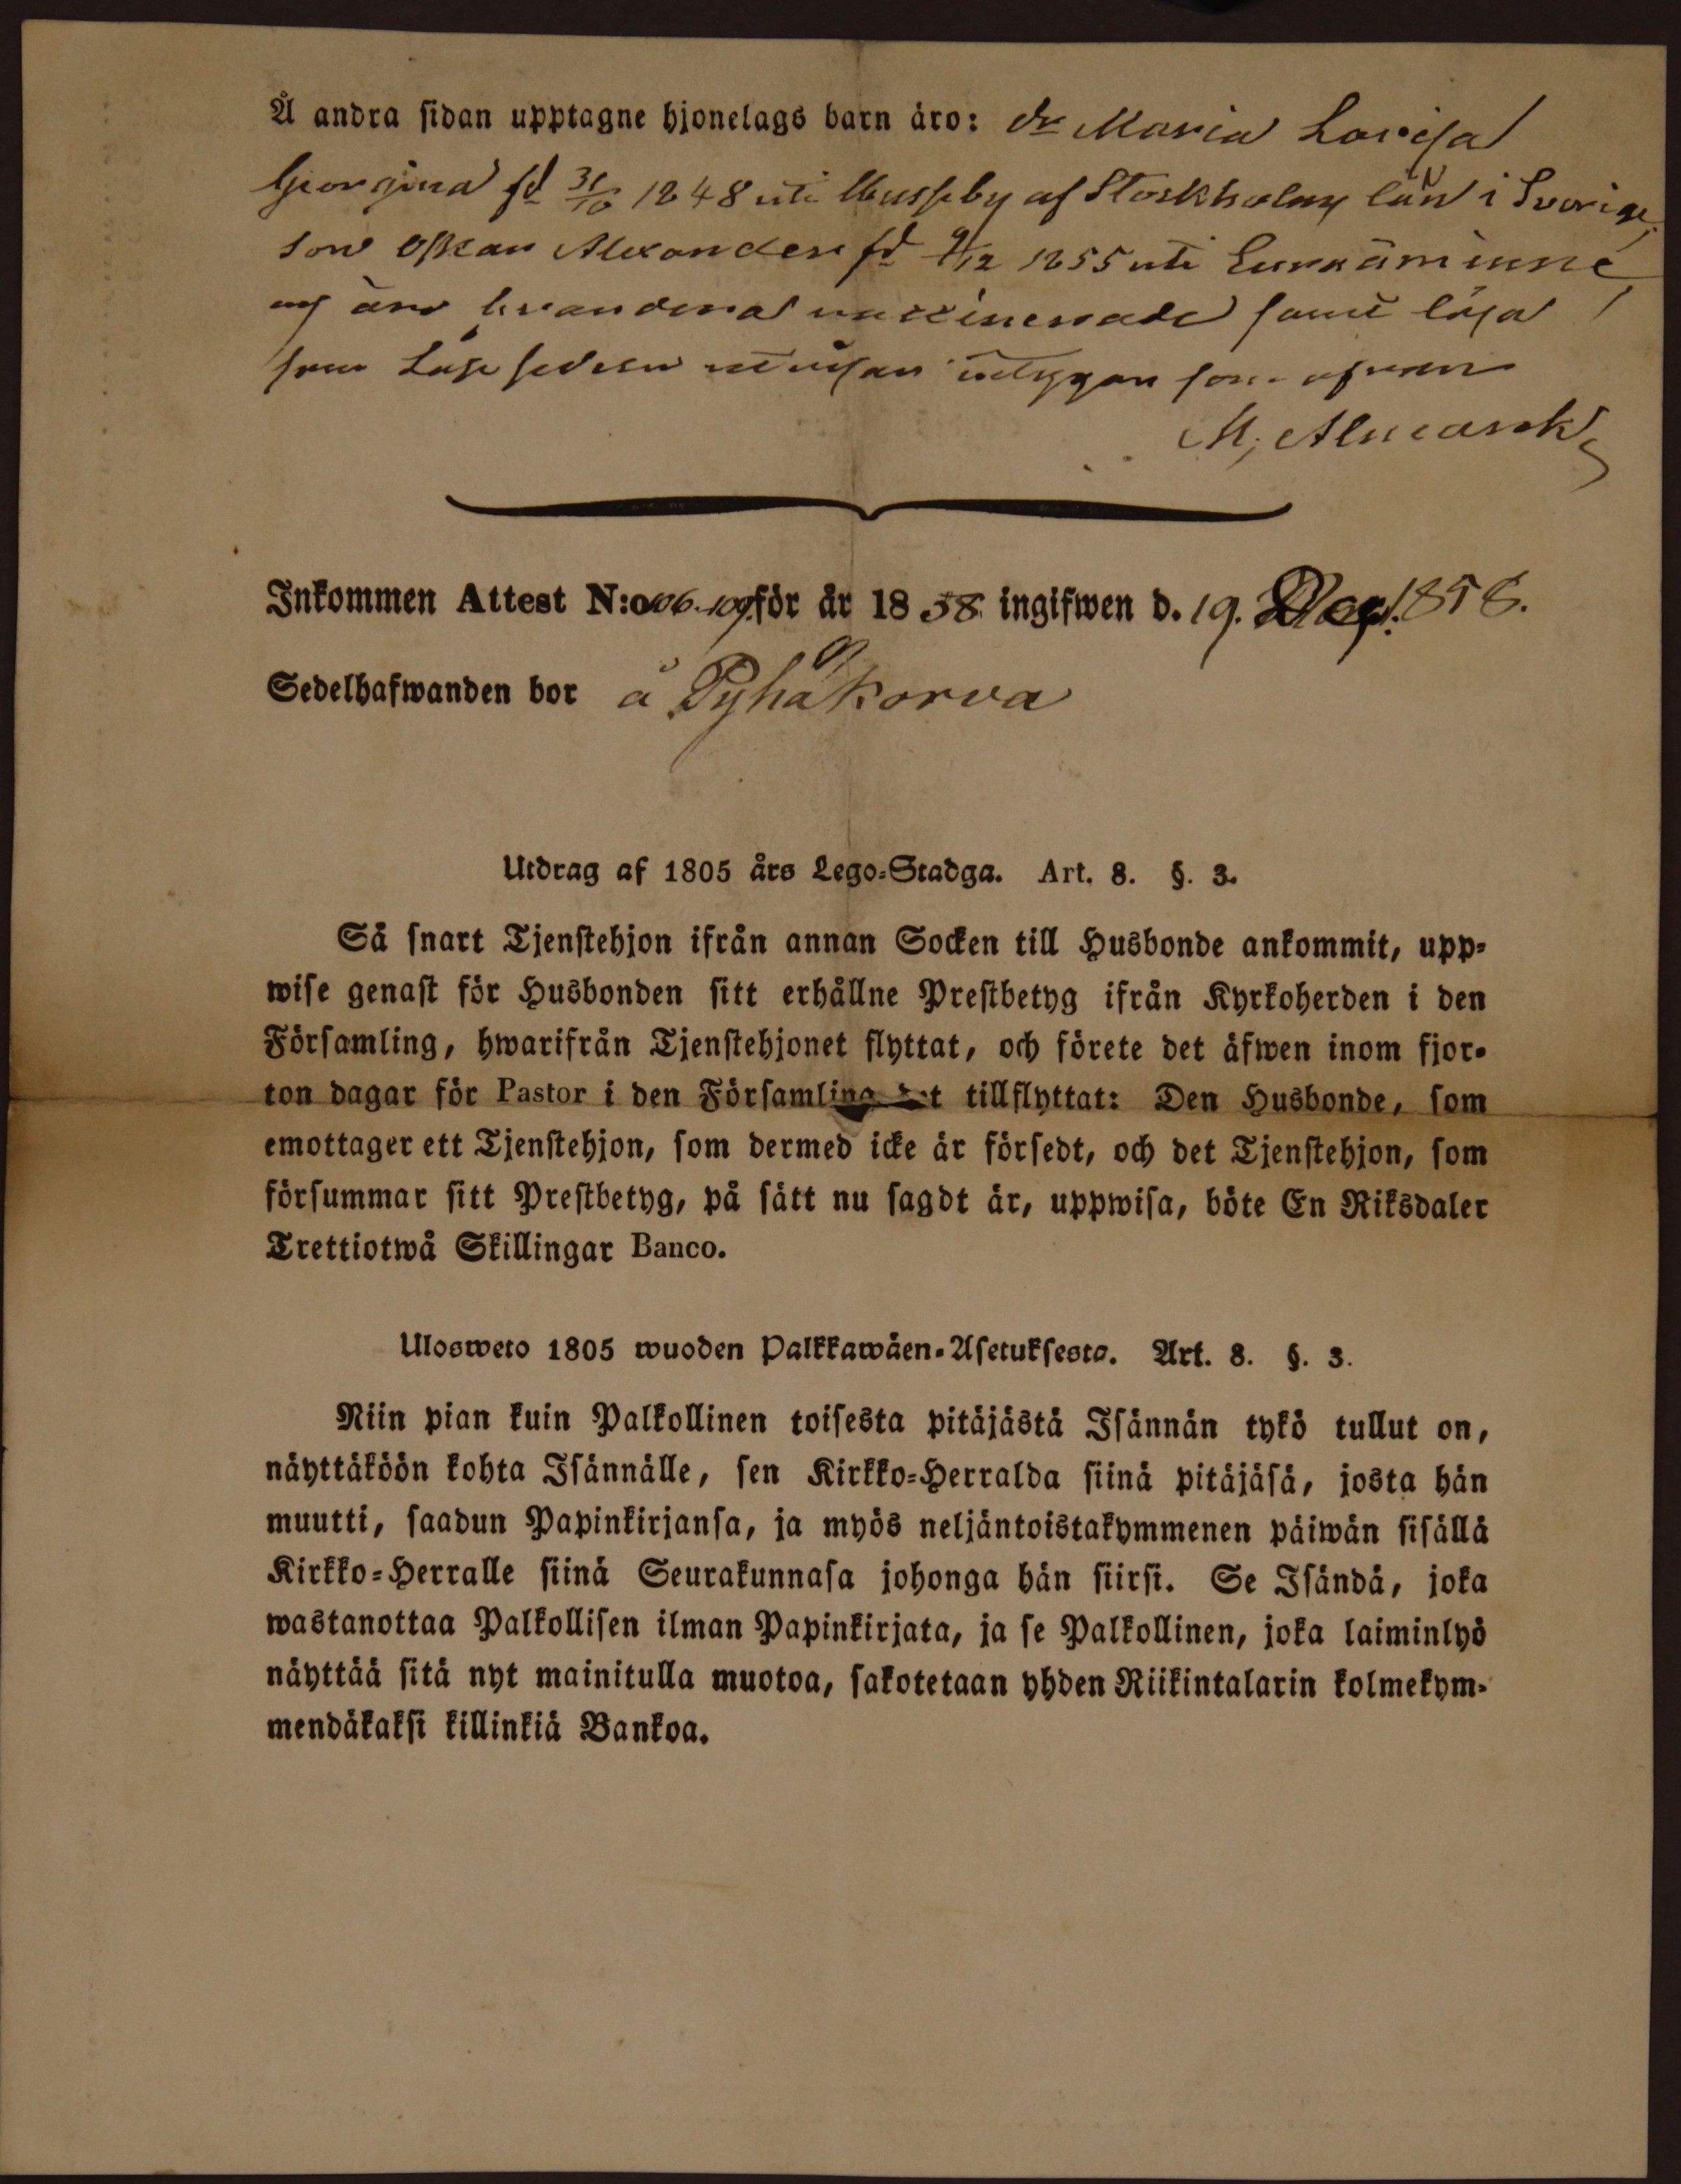 Å andra sidan upptagne hjonelags barn äro: dr Maria Lovisa
Georgina fd 31/10 1848 uti Husseby af Stockholms län i Sverige,
son Oskar Alexander fd 9/12 1855 uti Euraåminne
äro vaccinerade samt läsa
som
M; Almark
Inkommen Attest N:o 106-109. för år 1858 ingifwen d. 19. Dec. 1858.
Sedelhafwanden bor å Pyhäkorva
Utdrag af 1805 års Lego-Stadga. Art. 8. §. 3.
Så snart Tjenstehjon ifrån annan Socken till Husbonde ankommit, upp-
wise genast för Husbonden sitt erhållne Prestbetyg ifrån Kyrkoherden i den
Församling, hwarifrån Tjenstehjonet flyttat, och förete det äfwen inom fjor-
ton dagar för Pastor i den Församling det tillflyttat: Den Husbonde, som
emottager ett Tjenstehjon, som dermed icke är försedt, och det Tjenstehjon, som
försummar sitt Prestbetyg, på sätt nu sagdt är, uppwisa, böte En Riksdaler
Trettiotwå Skillingar Banco.
Ulosweto 1805 wuoden Palkkawäen-Asetuksesta. Art. 8. §. 3.
Niin pian kuin Palkollinen toisesta pitäjästä Isännän tykö tullut on,
näyttäköön kohta Isännälle, sen Kirkko-Herralda siinä pitäjäsä, josta hän
muutti, saadun Papinkirjansa, ja myös neljäntoistakymmenen päiwän sisällä
Kirkko-Herralle siinä Seurakunnasa johonga hän siirsi. Se Isändä, joka
wastanottaa Palkollisen ilman Papinkirjata, ja se Palkollinen, joka laiminlyö
näyttää sitä nyt mainitulla muotoa, sakotetaan yhden Riikintalarin kolmekym-
mendäkaksi killinkiä Bankoa.